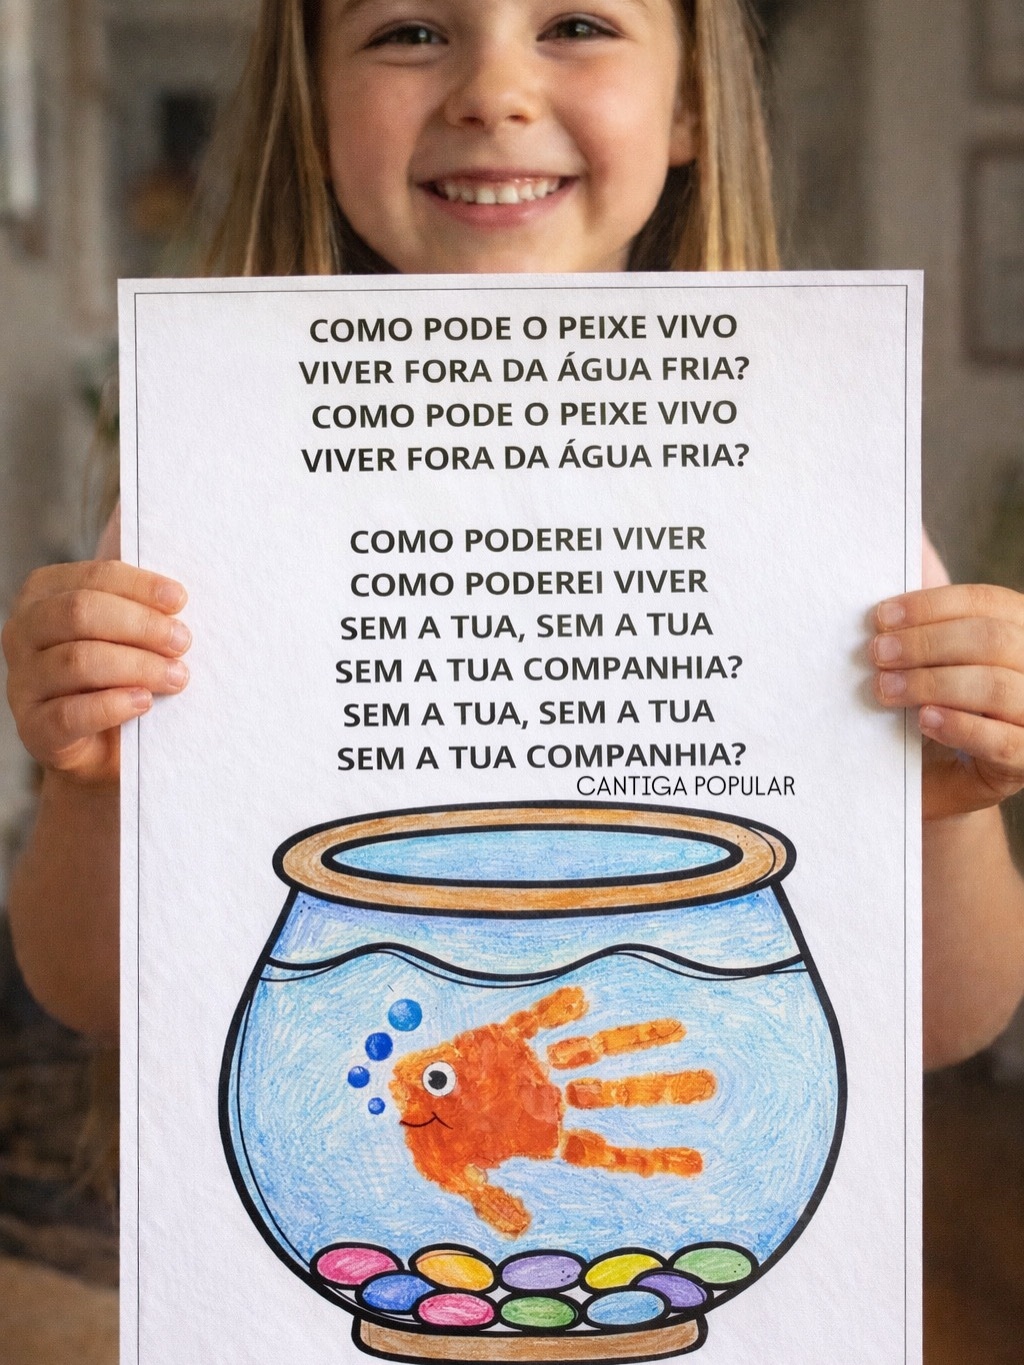 COMO PODE O PEIXE VIVO
VIVER FORA DA ÁGUA FRIA?
COMO PODE O PEIXE VIVO
VIVER FORA DA ÁGUA FRIA?
COMO PODEREI VIVER
COMO PODEREI VIVER
SEM A TUA, SEM A TUA
SEM A TUA COMPANHIA?
SEM A TUA, SEM A TUA
SEM A TUA COMPANHIA?
CANTIGA POPULAR